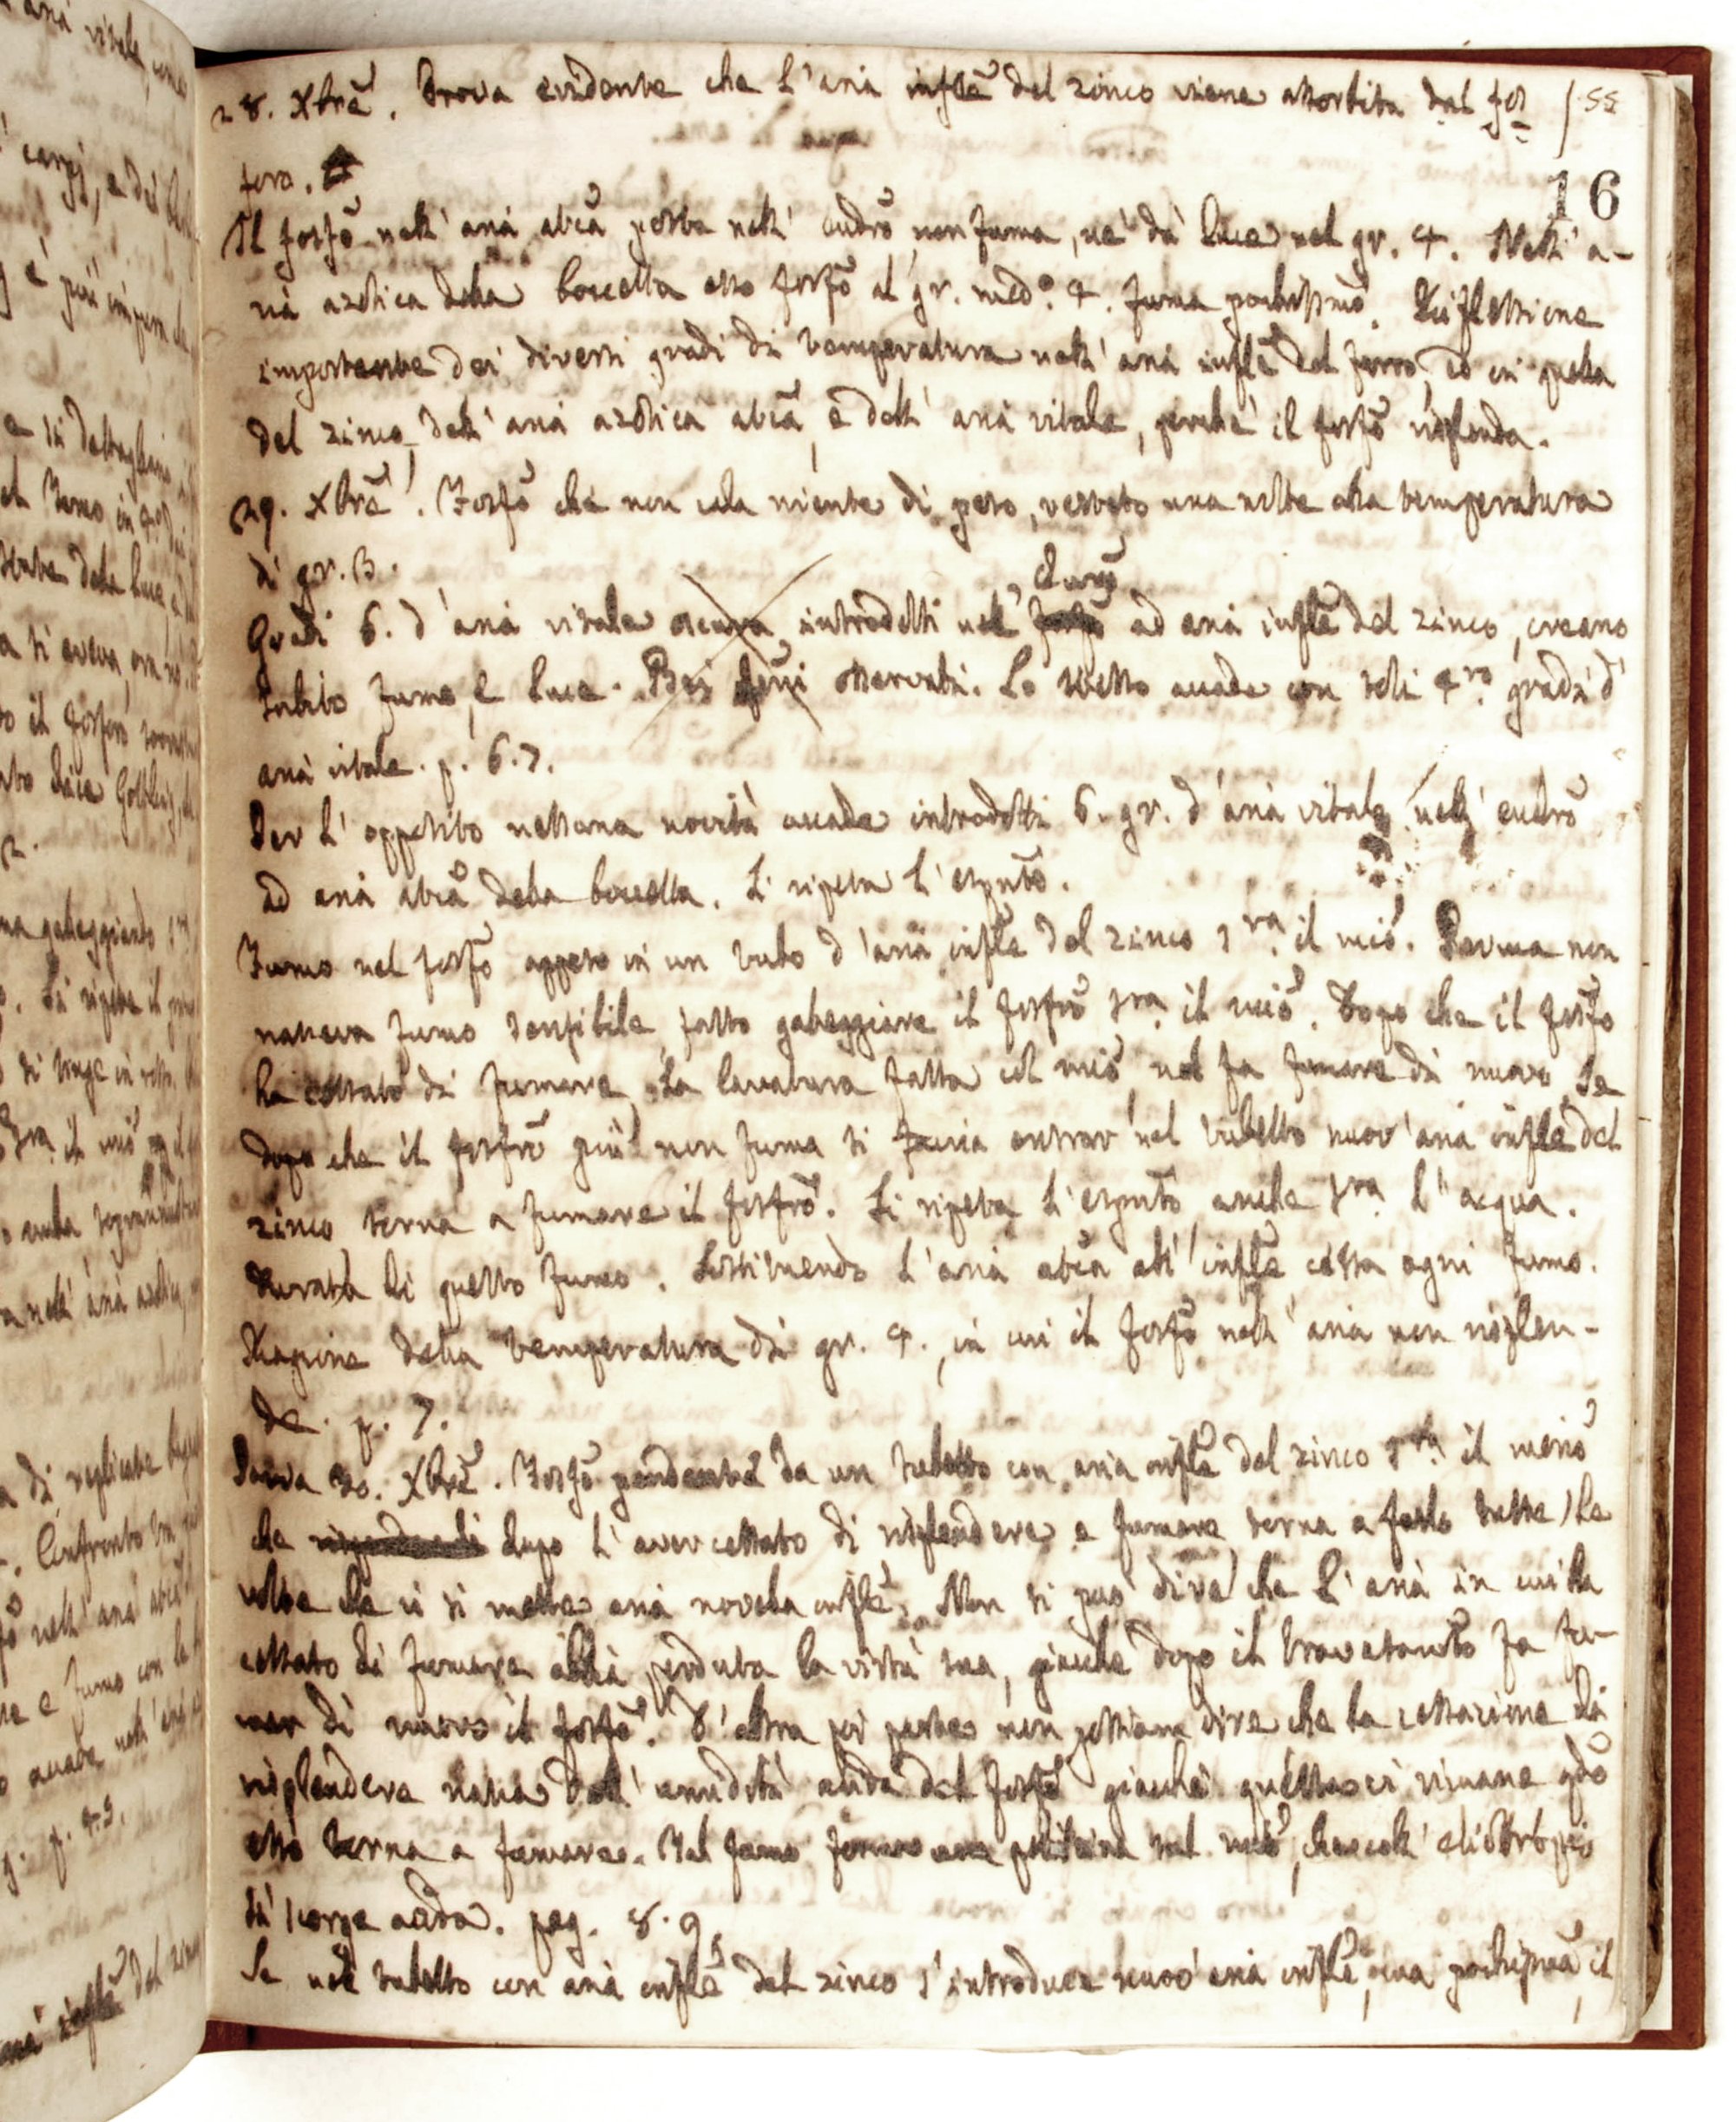 28. Xbrẽ. Prova evidente che l'aria inflẽ del zinco viene assorbita dal fos 155
foro.
16
Il fosfõ nell' aria atcã posta nell' eudrõ non fuma, nè dà luce nel gr. 4. Nell' a-
ria azotica della boccetta esso fosfõ al gr. medº. 4. fuma pochissimo. Riflessione
importante dei diversi gradi di temperatura nell' aria inflẽ del ferro, ed in quella
del zinco, dell' aria azotica atcã, e dell' aria vitale, perchè il fosfõ risplenda.
29. Xbrẽ. Fosfõ che non cala niente di peso, restato una notte alla temperatura
di gr. 3.
Gradi 6. d' aria vitale introdotti nell' ad aria inflẽ del zinco, creano
subito fumo, e luce. Bei osservati. Lo stesso accade con soli 4rº gradi d'
aria vitale. p. 6.7.
Per l' opposito nessuna novità accade introdotti 6. gr. d' aria vitale nell' eudrõ
ad aria atcã della boccetta. Si ripeta l' espntõ.
Fumo nel fosfõ appeso in un tubo d' aria inflẽ del zinco sra il mercº.
nasceva fumo sensibile, fatto galleggiare il fosfrõ sra il mercº. Dopo che il fosfõ
ha cessato di fumare, la lavatura fatta col mercº nol fa fumare di nuovo. Se
dopo che il fosfrõ più non fuma si faccia entrar nel tubetto nuov' aria inflẽ del
zinco torna a fumare il fosfrõ. Si ripeta l' espntõ anche sra l' acqua.
Durata di questo fumo. Sostituendo l' aria atcã all' inflẽ cessa ogni fumo.
Ragione della temperatura di gr. 4., in cui il fosfõ nell' aria non risplen-
de. p. 7.
30. Xbrẽ. Fosfõ pendente da un tubetto con aria inflẽ del zinco sra il mercº
che dopo l' aver cessato di risplendere e fumare torna a farlo tutte le
volte che vi si mette aria novella inflẽ. Non si può dire che l' aria in cui ha
cessato di fumare abbia perduta la virtù sua, giacchè dopo il travasamtõ fa fu-
mar di nuovo il fosfõ. D' altra poi parte non possiam dire che la cessazione di
risplendere nasca dall' umidità acida del fosfõ giacchè questa ci rimane qdõ
esso torna a fumare. Tal fumo forma una pellicina sul mercº, che coll' eliotropio
si scorge acida. pag. 8.9.
Se nel tubetto con aria inflẽ del zinco s' introduce nuov' aria inflẽ, ma pochissima, il